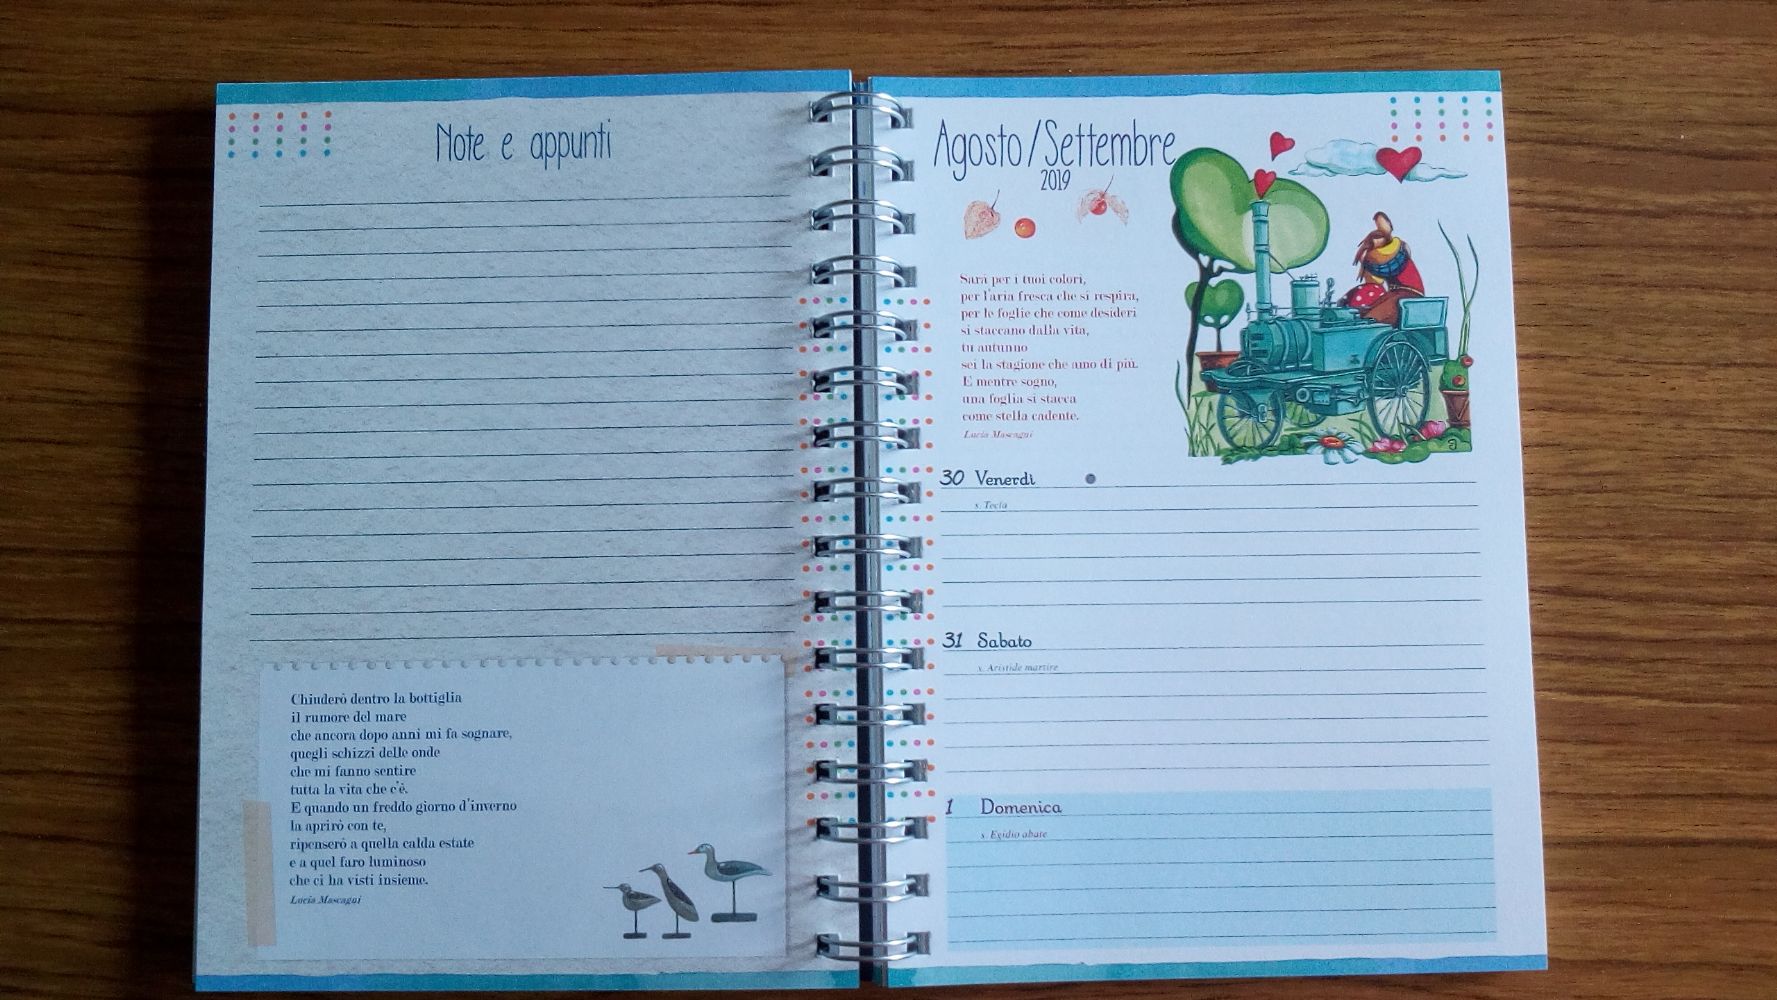 Note e appunti
Chiuderò dentro la bottiglia
il rumore del mare
che ancora dopo anni mi fa sognare,
quegli schizzi delle onde
che mi fanno sentire
tutta la vita che c'è.
E quando un freddo giorno d'inverno
la aprirò con te,
ripenserò a quella calda estate
e a quel faro luminoso
che ci ha visti insieme.
Lucia Mascagni
Agosto/Settembre
2019
Sarà per i tuoi colori,
per l'aria fresca che si respira,
per le foglie che come desideri
si staccano dalla vita,
tu autunno
sei la stagione che amo di più.
E mentre sogno,
una foglia si stacca
come stella cadente.
Lucia Mascagni
30 Venerdì
s. Tecla
31 Sabato
s. Aristide martire
1 Domenica
s. Egidio abate